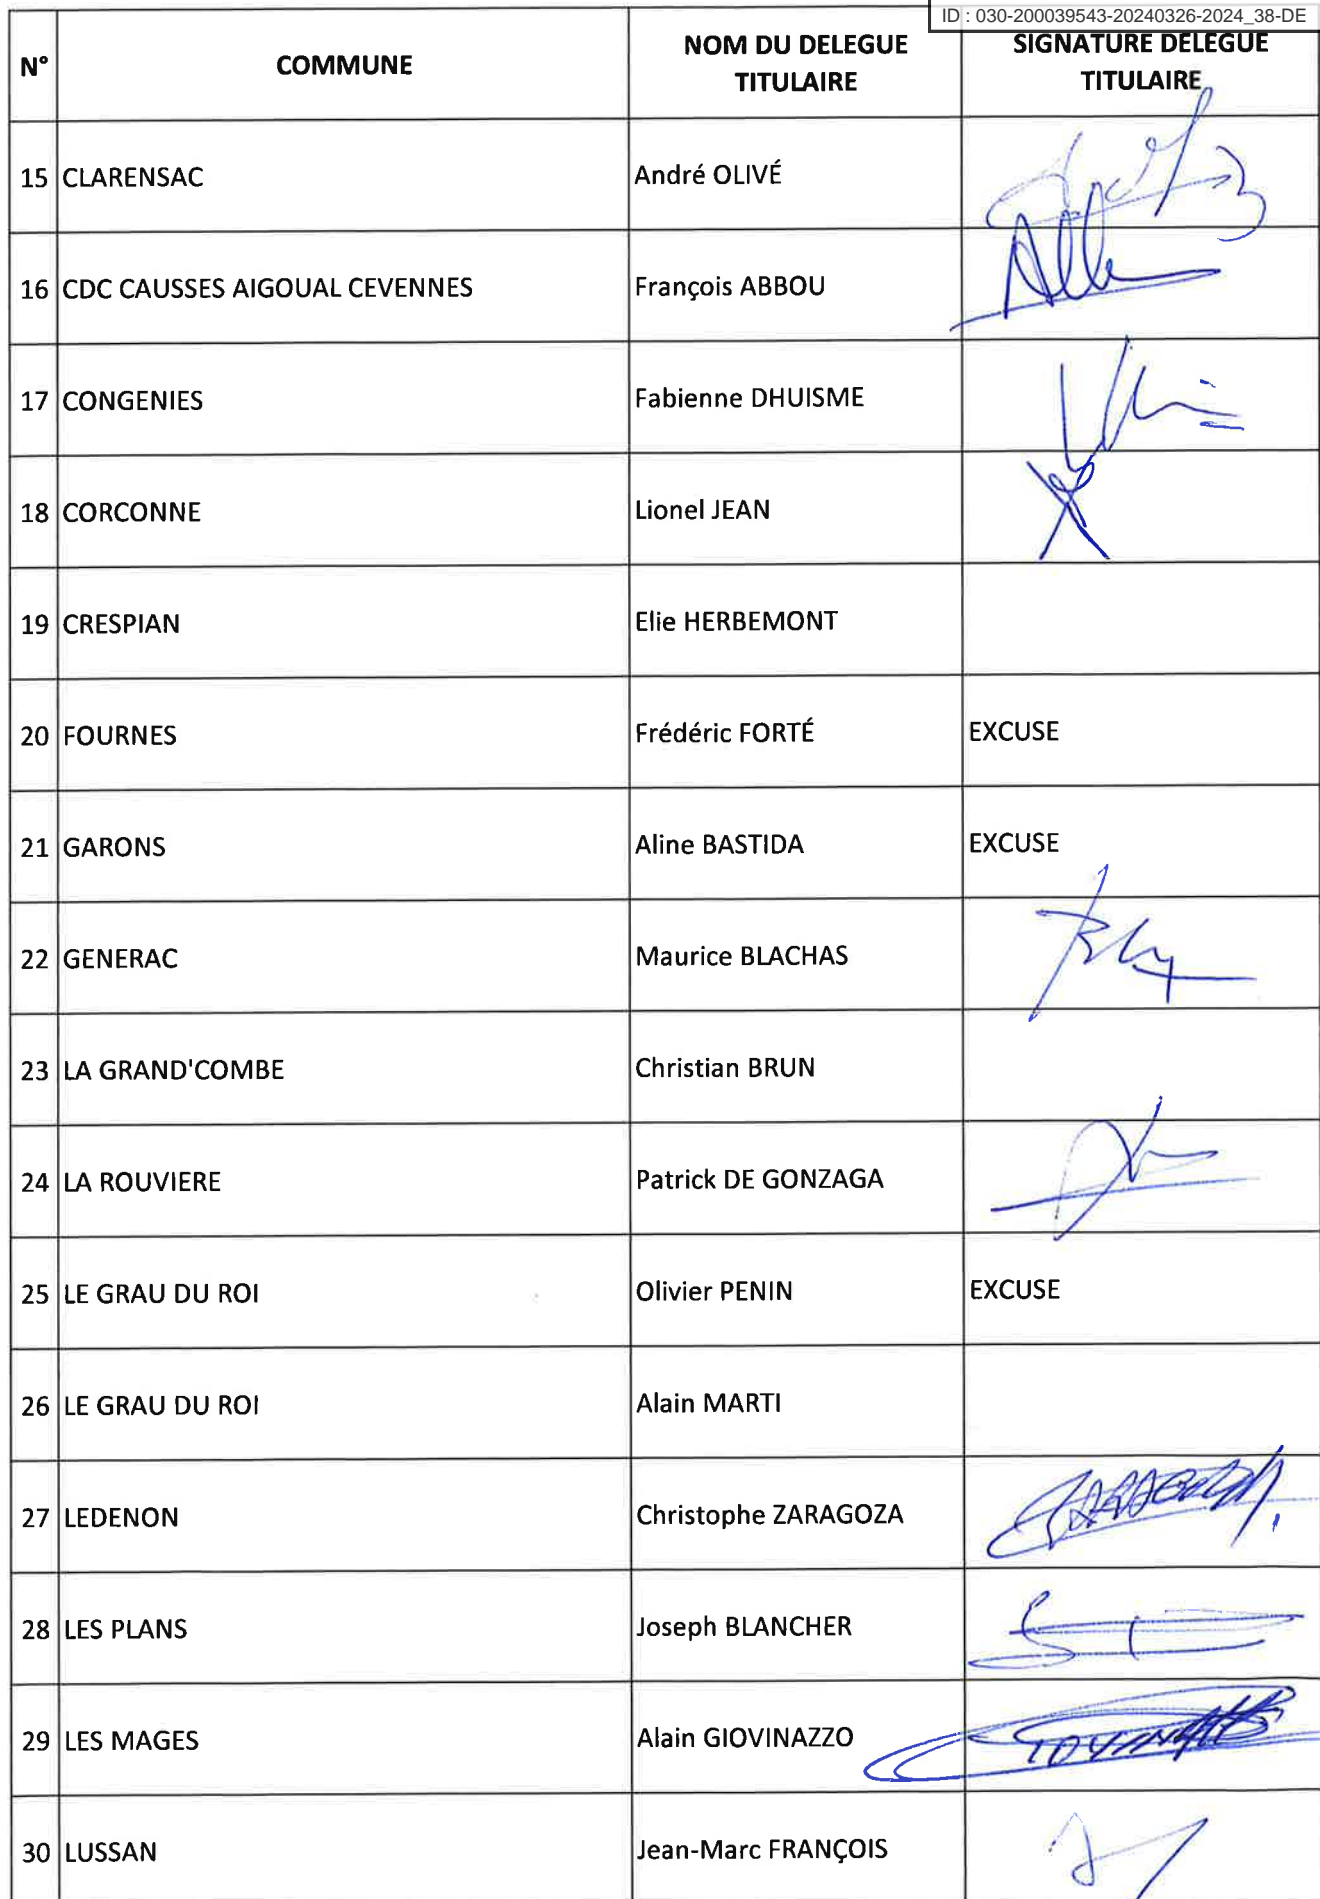 ID : 030-200039543-20240326-2024_38-DE
N° COMMUNE NOM DU DELEGUE TITULAIRE SIGNATURE DELEGUE TITULAIRE
15 CLARENSAC André OLIVÉ
16 CDC CAUSSES AIGOUAL CEVENNES François ABBOU
17 CONGENIES Fabienne DHUISME
18 CORCONNE Lionel JEAN
19 CRESPIAN Elie HERBEMONT
20 FOURNES Frédéric FORTÉ EXCUSE
21 GARONS Aline BASTIDA EXCUSE
22 GENERAC Maurice BLACHAS
23 LA GRAND'COMBE Christian BRUN
24 LA ROUVIERE Patrick DE GONZAGA
25 LE GRAU DU ROI Olivier PENIN EXCUSE
26 LE GRAU DU ROI Alain MARTI
27 LEDENON Christophe ZARAGOZA
28 LES PLANS Joseph BLANCHER
29 LES MAGES Alain GIOVINAZZO
30 LUSSAN Jean-Marc FRANÇOIS